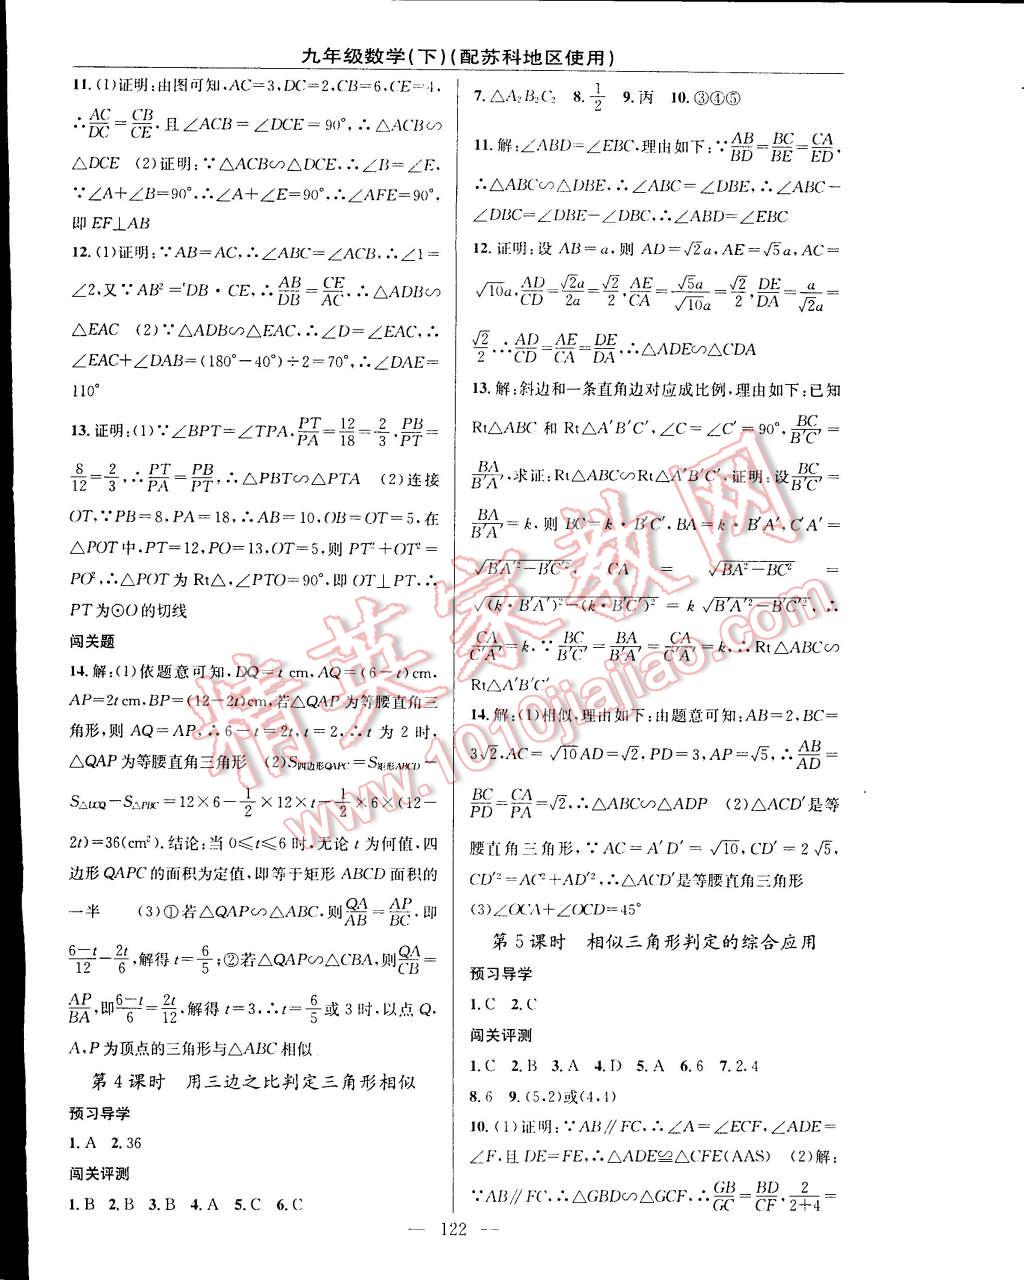 九年级数学(下)(配苏科地区使用)
11.(1)证明:由图可知,AC=3,DC=2,CB=6,CE=4,
∴AC/DC=CB/CE,且∠ACB=∠DCE=90°,∴△ACB∽
△DCE (2)证明:∵△ACB∽△DCE,∴∠B=∠E.
∵∠A+∠B=90°,∴∠A+∠E=90°,∴∠AFE=90°,
即EF⊥AB
12.(1)证明:∵AB=AC,∴∠ABC=∠ACB,∴∠1=
∠2,又∵AB²=DB·CE,∴AB/DB=CE/AC,∴△ADB∽
△EAC (2)∵△ADB∽△EAC,∴∠D=∠EAC,∴
∠EAC+∠DAB=(180°-40°)÷2=70°,∴∠DAE=
110°
13.证明:(1)∵∠BPT=∠TPA,PT/PA=12/18=2/3,PB/PT=
8/12=2/3,∴PT/PA=PB/PT,∴△PBT∽△PTA (2)连接
OT,∵PB=8,PA=18,∴AB=10,OB=OT=5,在
△POT中,PT=12,PO=13,OT=5,则PT²+OT²=
PO²,∴△POT为Rt△,∠PTO=90°,即OT⊥PT,∴
PT为⊙O的切线
闯关题
14.解:(1)依题意可知,DQ=t cm,AQ=(6-t)cm,
AP=2t cm,BP=(12-2t)cm,若△QAP为等腰直角三
角形,则AQ=AP,∴6-t=2t,t=2,∴t为2时,
△QAP为等腰直角三角形 (2)S四边形QAPC=S矩形ABCD-
S△DCQ-S△PBC=12×6-1/2×12×t-1/2×6×(12-
2t)=36(cm²).结论:当0≤t≤6时,无论t为何值,四
边形QAPC的面积为定值,即等于矩形ABCD面积的
一半 (3)①若△QAP∽△ABC,则QA/AB=AP/BC,即
6-t/12=2t/6,解得t=6/5;②若△QAP∽△CBA,则QA/CB=
AP/BA,即6-t/6=2t/12,解得t=3,∴t=6/5或3时,以点Q,
A,P为顶点的三角形与△ABC相似
第4课时 用三边之比判定三角形相似
预习导学
1.A 2.36
闯关评测
1.B 2.B 3.B 4.A 5.C 6.C
7.△A₂B₂C₂ 8.1/2 9.丙 10.③④⑤
11.解:∠ABD=∠EBC,理由如下:∵AB/BD=BC/BE=CA/ED,
∴△ABC∽△DBE,∴∠ABC=∠DBE,∴∠ABC-
∠DBC=∠DBE-∠DBC,∴∠ABD=∠EBC
12.证明:设AB=a,则AD=√2a,AE=√5a,AC=
√10a,AD/CD=√2a/2a=√2/2,AE/CA=√5a/√10a=√2/2,DE/DA=a/√2a=
√2/2,∴AD/CD=AE/CA=DE/DA,∴△ADE∽△CDA
13.解:斜边和一条直角边对应成比例,理由如下:已知
Rt△ABC和Rt△A′B′C′,∠C=∠C′=90°,BC/B′C′=
BA/B′A′,求证:Rt△ABC∽Rt△A′B′C′,证明:设BC/B′C′=
BA/B′A′=k,则BC=k·B′C′,BA=k·B′A′,C′A′=
√B′A′²-B′C′², CA = √BA²-BC² =
√(k·B′A′)²-(k·B′C′)²=k√B′A′²-B′C′²,∴
CA/C′A′=k,∵BC/B′C′=BA/B′A′=CA/C′A′=k,∴Rt△ABC∽
Rt△A′B′C′
14.解:(1)相似,理由如下:由题意可知:AB=2,BC=
3√2,AC=√10 AD=√2,PD=3,AP=√5,∴AB/AD=
BC/PD=CA/PA=√2,∴△ABC∽△ADP (2)△ACD′是等
腰直角三角形,∵AC=A′D′=√10,CD′=2√5,
CD′²=AC²+AD′²,∴△ACD′是等腰直角三角形
(3)∠OCA+∠OCD=45°
第5课时 相似三角形判定的综合应用
预习导学
1.C 2.C
闯关评测
1.C 2.B 3.A 4.D 5.A 6.6 7.2.4
8.6 9.(5,2)或(4,4)
10.(1)证明:∵AB∥FC,∴∠A=∠ECF,∠ADE=
∠F,且DE=FE,∴△ADE≌△CFE(AAS) (2)解:
∵AB∥FC,∴△GBD∽△GCF,∴GB/GC=BD/CF,2/2+4=
— 122 —
精英家教网
1010jiajiao.com